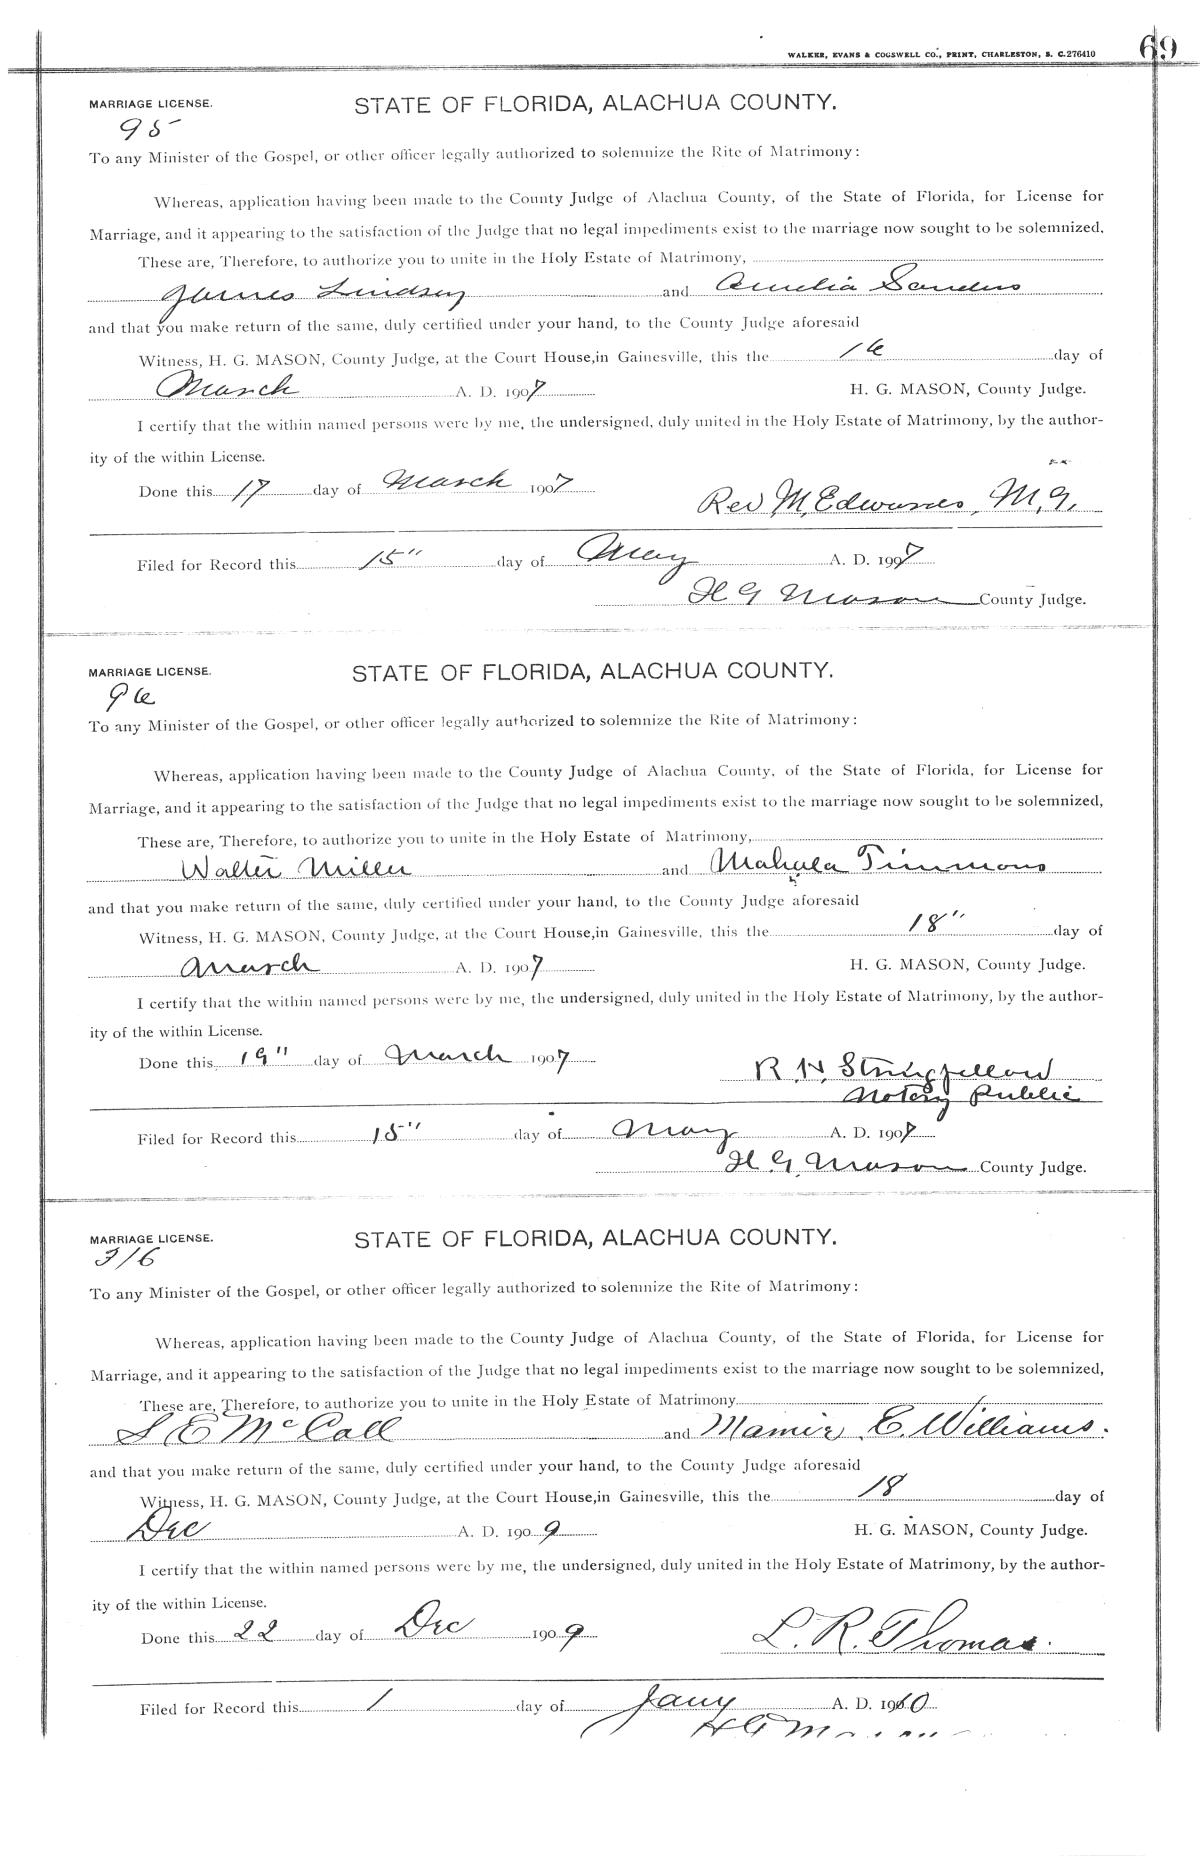 WALKER, EVANS & COGSWELL CO., PRINT, CHARLESTON, S. C. 276410 69
MARRIAGE LICENSE. STATE OF FLORIDA, ALACHUA COUNTY.
95
To any Minister of the Gospel, or other officer legally authorized to solemnize the Rite of Matrimony:
Whereas, application having been made to the County Judge of Alachua County, of the State of Florida, for License for
Marriage, and it appearing to the satisfaction of the Judge that no legal impediments exist to the marriage now sought to be solemnized,
These are, Therefore, to authorize you to unite in the Holy Estate of Matrimony,
James Lindsey and Amelia Sanders
and that you make return of the same, duly certified under your hand, to the County Judge aforesaid
Witness, H. G. MASON, County Judge, at the Court House, in Gainesville, this the 16 day of
March A. D. 1907 H. G. MASON, County Judge.
I certify that the within named persons were by me, the undersigned, duly united in the Holy Estate of Matrimony, by the author-
ity of the within License.
Done this 17 day of March 1907
Rev M. Edwards, M.G.
Filed for Record this 15" day of May A. D. 1907
H G Mason County Judge.
MARRIAGE LICENSE. STATE OF FLORIDA, ALACHUA COUNTY.
96
To any Minister of the Gospel, or other officer legally authorized to solemnize the Rite of Matrimony:
Whereas, application having been made to the County Judge of Alachua County, of the State of Florida, for License for
Marriage, and it appearing to the satisfaction of the Judge that no legal impediments exist to the marriage now sought to be solemnized,
These are, Therefore, to authorize you to unite in the Holy Estate of Matrimony,
Walter Miller and Mahula Timmons
and that you make return of the same, duly certified under your hand, to the County Judge aforesaid
Witness, H. G. MASON, County Judge, at the Court House, in Gainesville, this the 18" day of
March A. D. 1907 H. G. MASON, County Judge.
I certify that the within named persons were by me, the undersigned, duly united in the Holy Estate of Matrimony, by the author-
ity of the within License.
Done this 19" day of March 1907
R. N. Stringfellow
Notary Public
Filed for Record this 15" day of May A. D. 1907
H. G. Mason County Judge.
MARRIAGE LICENSE. STATE OF FLORIDA, ALACHUA COUNTY.
316
To any Minister of the Gospel, or other officer legally authorized to solemnize the Rite of Matrimony:
Whereas, application having been made to the County Judge of Alachua County, of the State of Florida, for License for
Marriage, and it appearing to the satisfaction of the Judge that no legal impediments exist to the marriage now sought to be solemnized,
These are, Therefore, to authorize you to unite in the Holy Estate of Matrimony
S E McCall and Mamie E. Williams.
and that you make return of the same, duly certified under your hand, to the County Judge aforesaid
Witness, H. G. MASON, County Judge, at the Court House, in Gainesville, this the 18 day of
Dec A. D. 1909 H. G. MASON, County Judge.
I certify that the within named persons were by me, the undersigned, duly united in the Holy Estate of Matrimony, by the author-
ity of the within License.
Done this 22 day of Dec 1909
L. R. Thomas.
Filed for Record this 1 day of Jany A. D. 1910
H G Mason